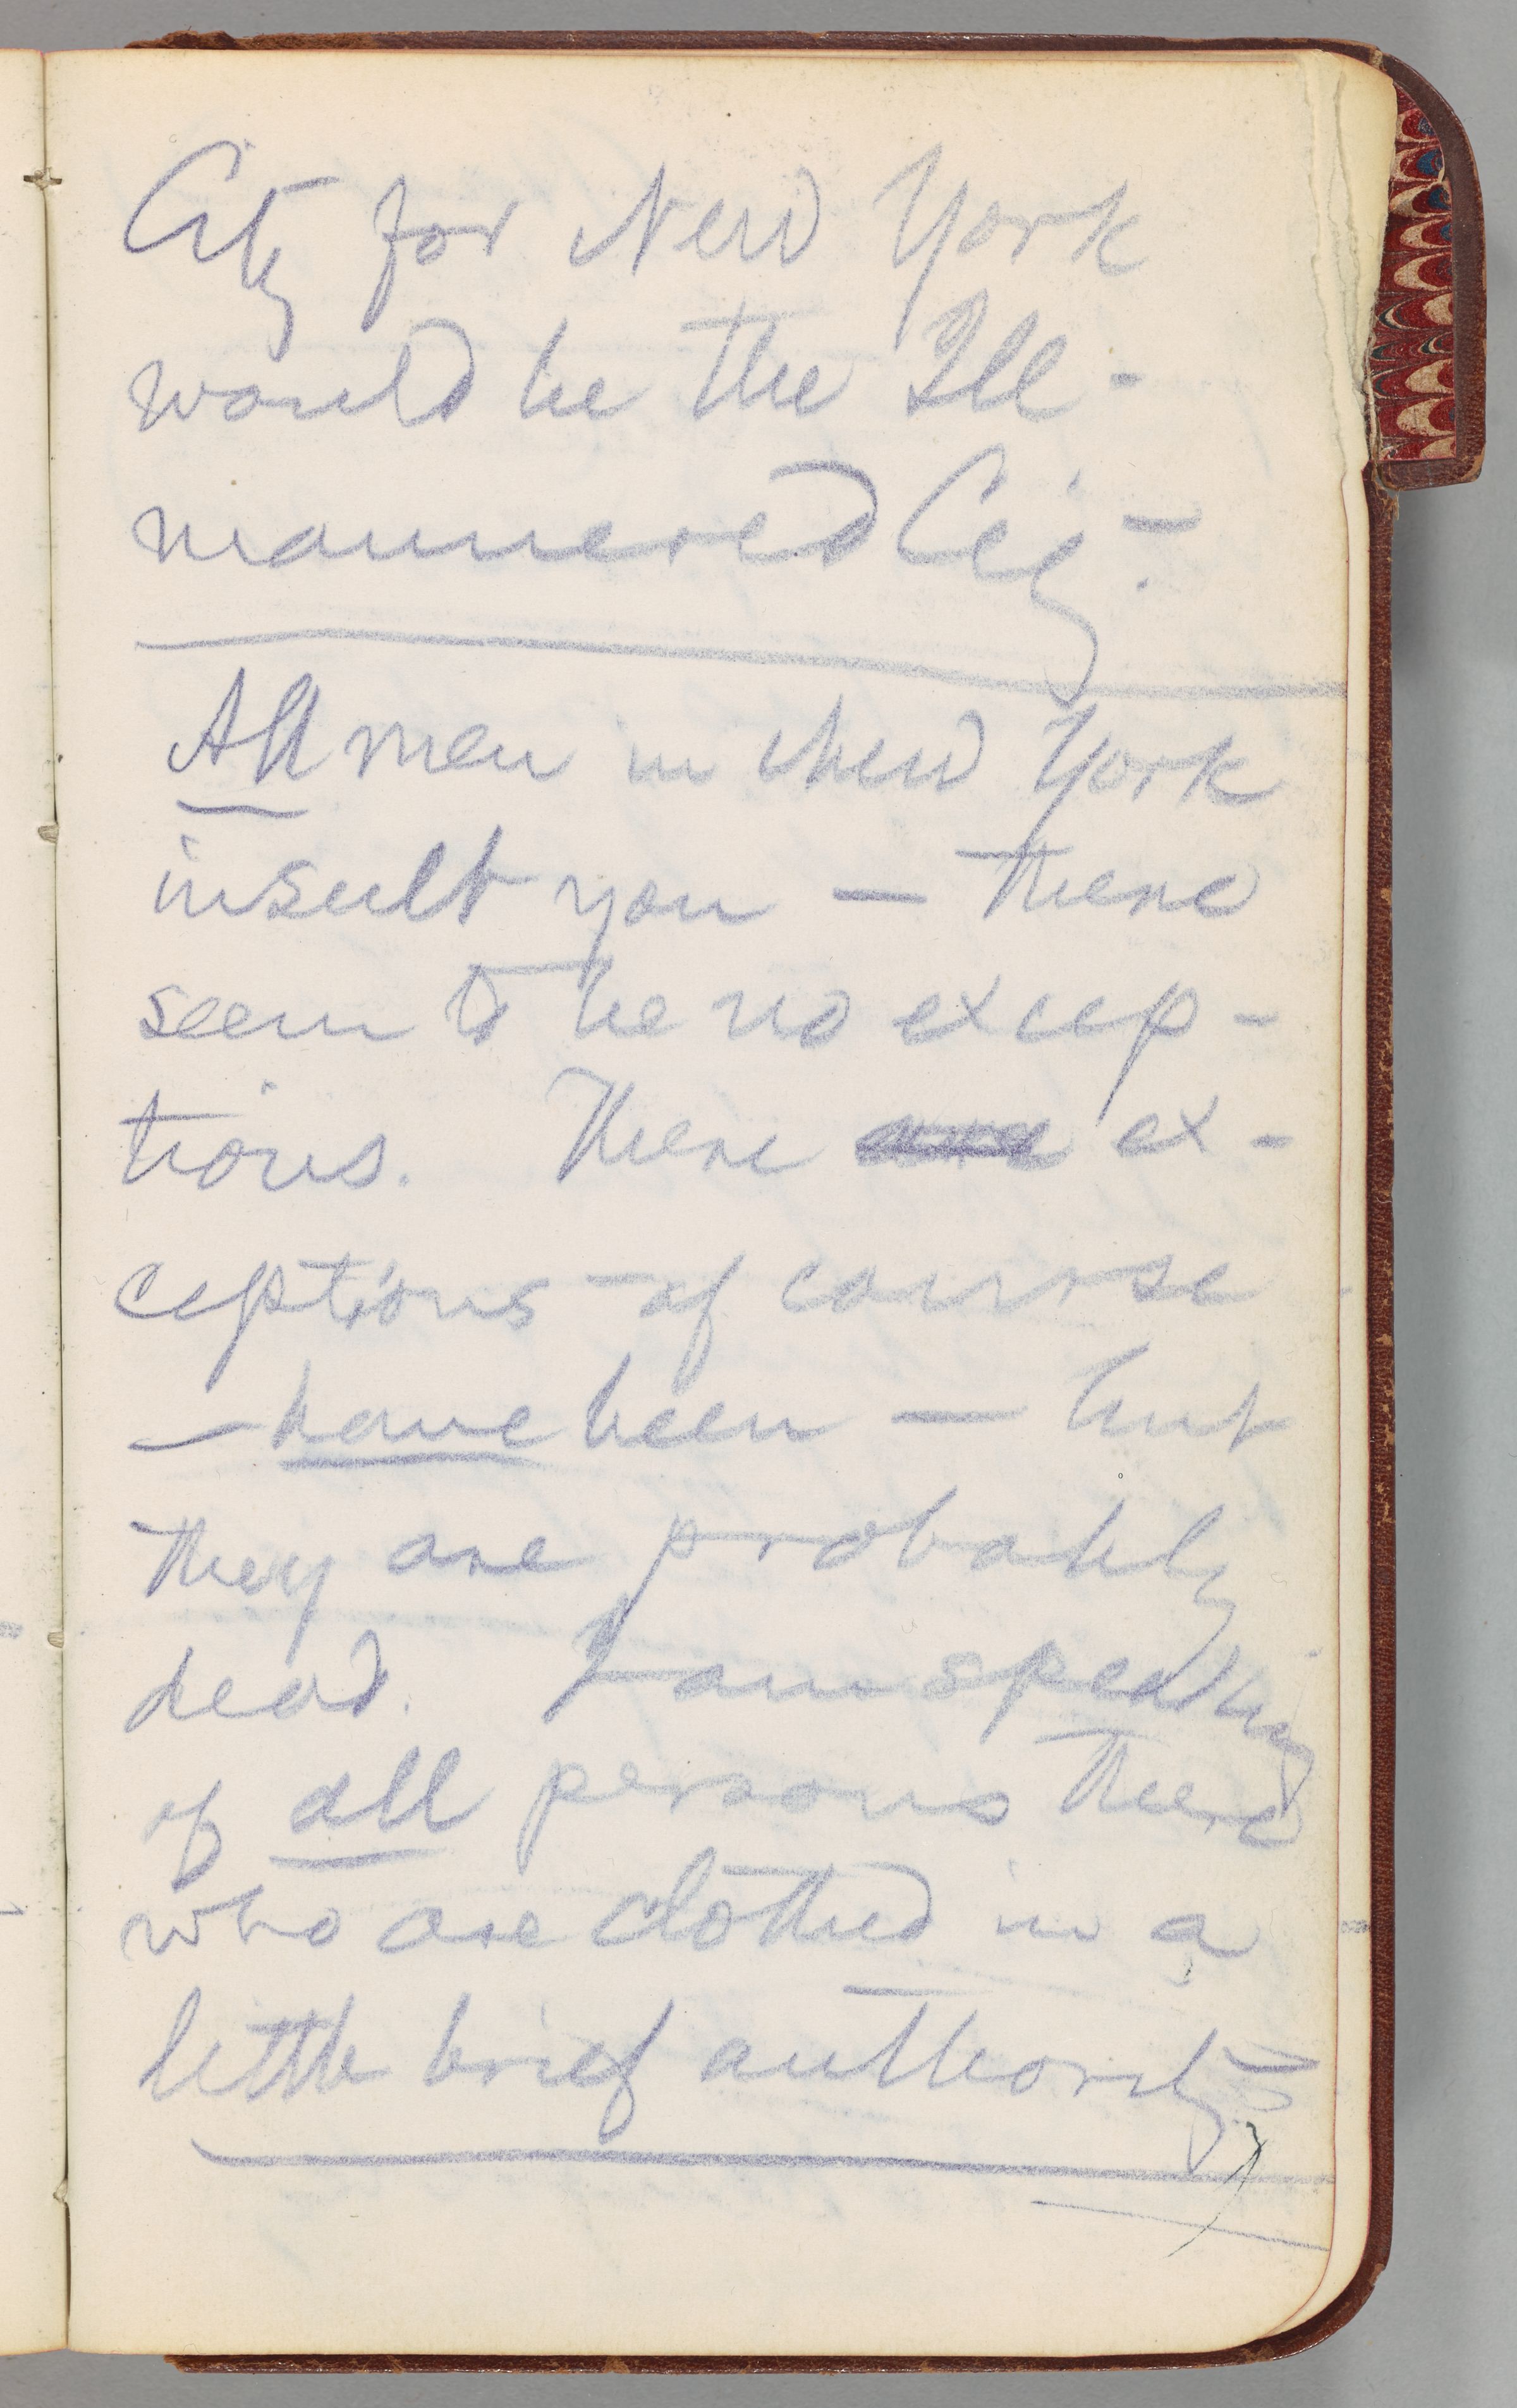 City for New York
would be the Ill-
mannered City.
All men in New York
insult you — there
seem to be no excep-
tions. There are ex-
ceptions of course
— have been — but
they are probably
dead. I am speaking
of all persons there
who are clothed in a
little brief authority.